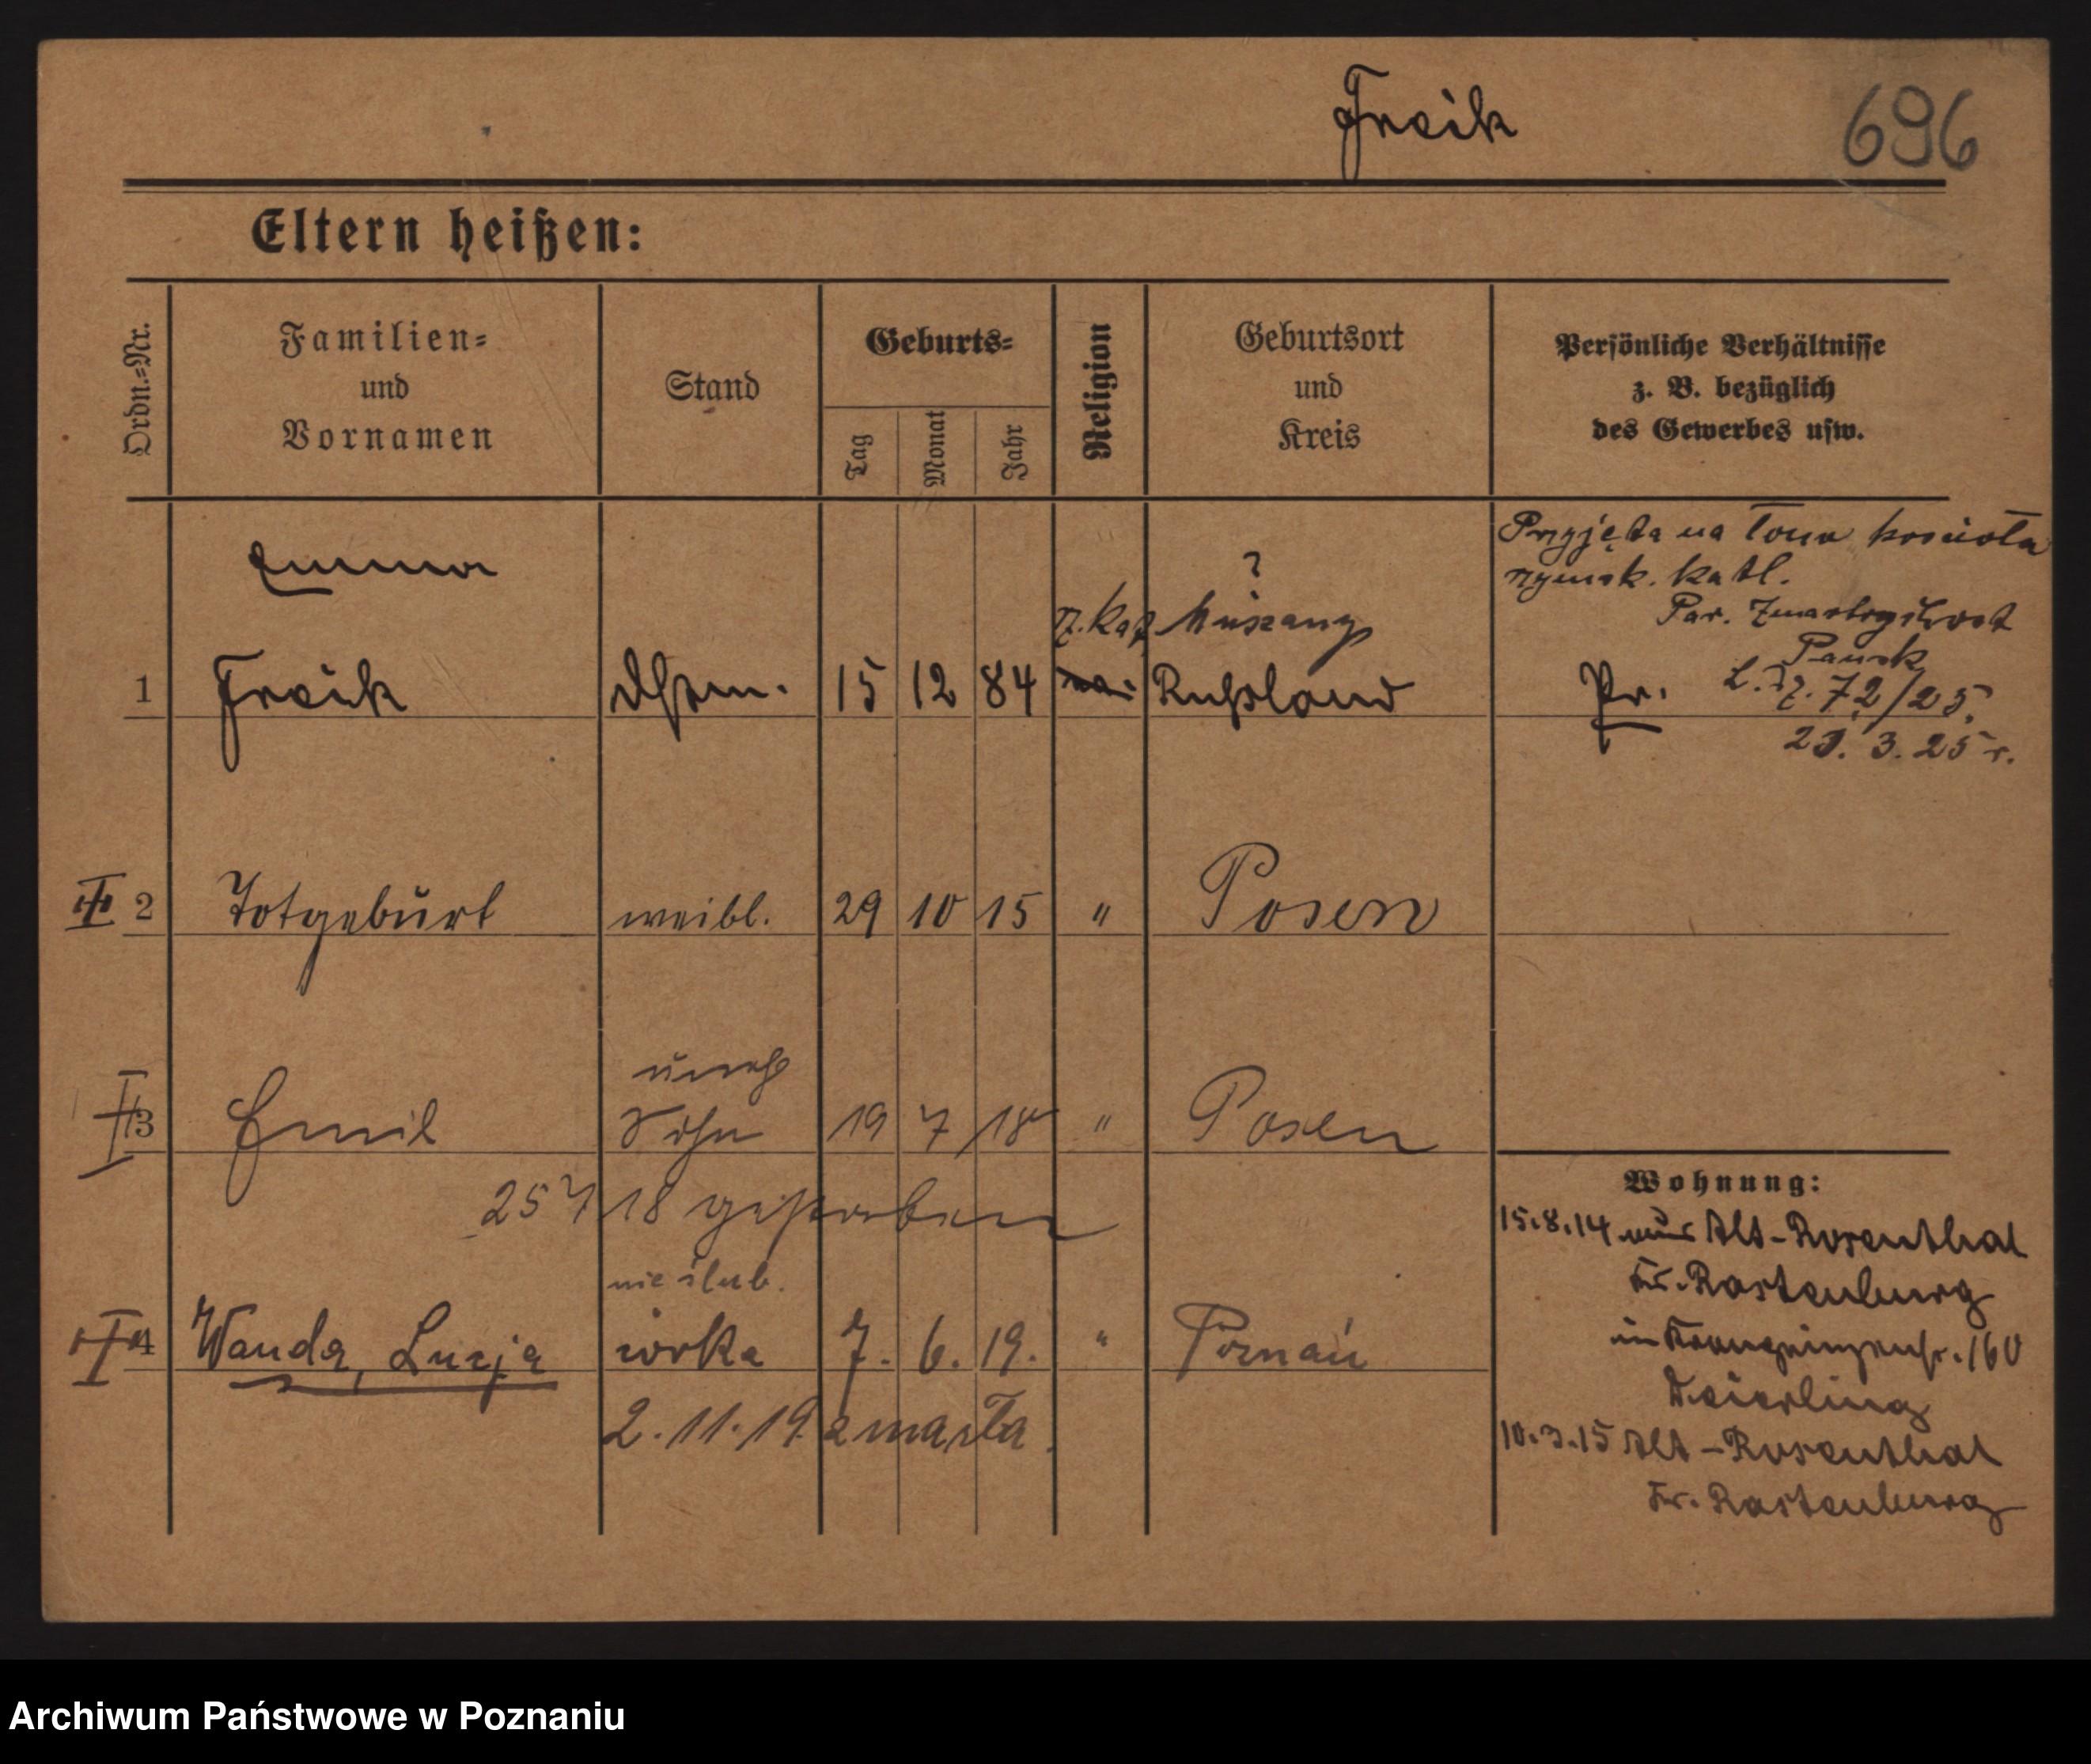 Freik
696
Eltern heißen:
Ordn.=Nr.
Familien=
und
Vornamen
Stand
Geburts=
Tag
Monat
Jahr
Religion
Geburtsort
und
Kreis
Persönliche Verhältnisse
z. B. bezüglich
des Gewerbes usw.
Emma
Freik
1
15 12 84
rz. kat
?
Rußland
Przyjęta na łono kościoła
rzymsk. katl.
Par.
L. dz. 72/25.
3. 25 r.
Pr.
2 Totgeburt weibl. 29 10 15 " Posen
3 Emil unehl Sohn 19 7 18 " Posen
25 7 18 gestorben
4 Wanda, Lucja nieślub. córka 7. 6. 19. " Poznań
2. 11. 19. zmarła.
Wohnung:
15.8.14 aus Alt-Rosenthal
Kr. Rastenburg
in Kronprinzenstr. 160
10.3.15 Alt-Rosenthal
Kr. Rastenburg
Archiwum Państwowe w Poznaniu